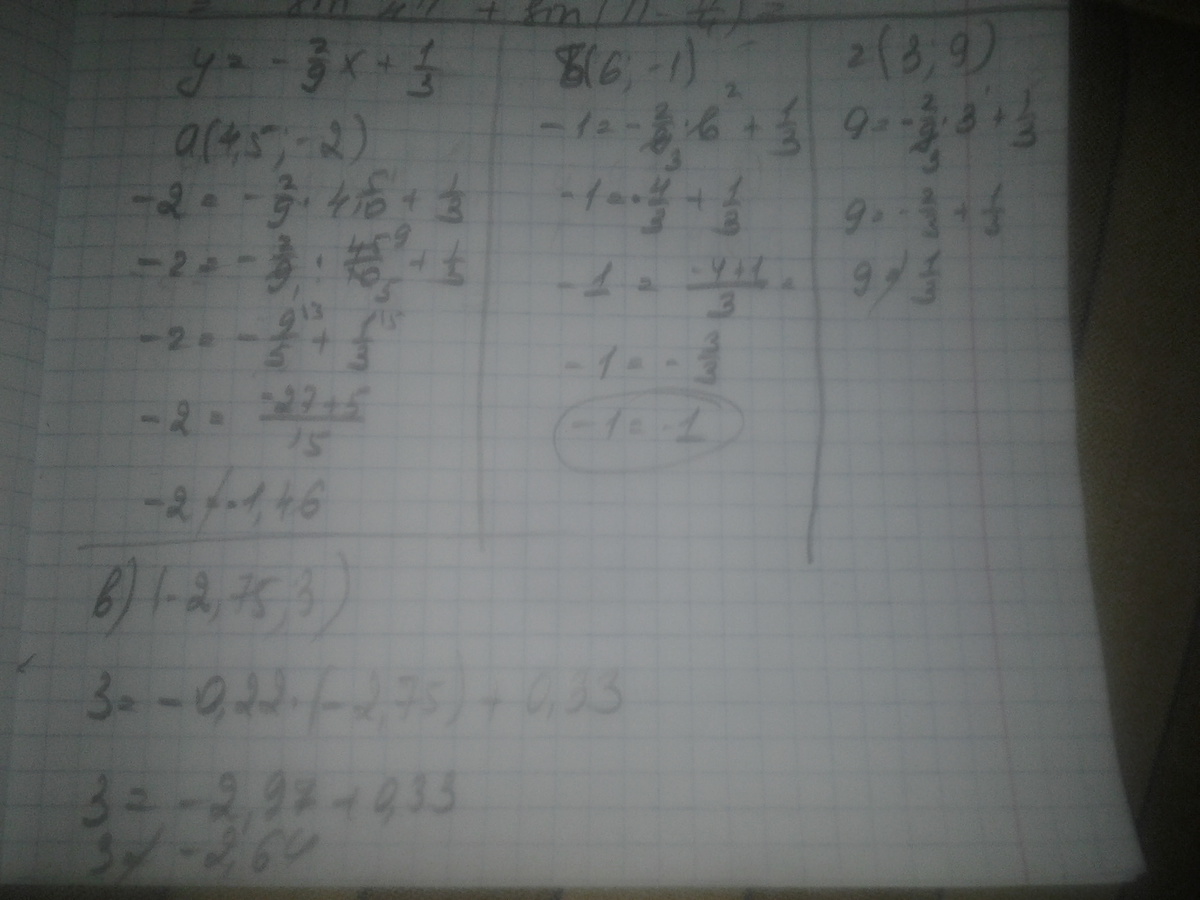 = sin π + sin(π - π/4) =
y = - 2/9 x + 1/3
а(4,5; -2)
-2 = - 2/9 · 4 5/10 + 1/3
-2 = - 2/9 · 45/10 + 1/3
-2 = - 9/5 + 1/3
-2 = (-27+5)/15
-2 ≠ -1,46
Б(6; -1)
-1 = - 2/9 · 6 + 1/3
-1 = - 4/3 + 1/3
-1 = (-4+1)/3 =
-1 = - 3/3
-1 = -1
г(3; 9)
9 = - 2/9 · 3 + 1/3
9 = - 2/3 + 1/3
9 ≠ 1/3
в) (-2,75; 3)
3 = - 0,22 · (-2,75) + 0,33
3 = - 2,97 + 0,33
3 ≠ - 2,64